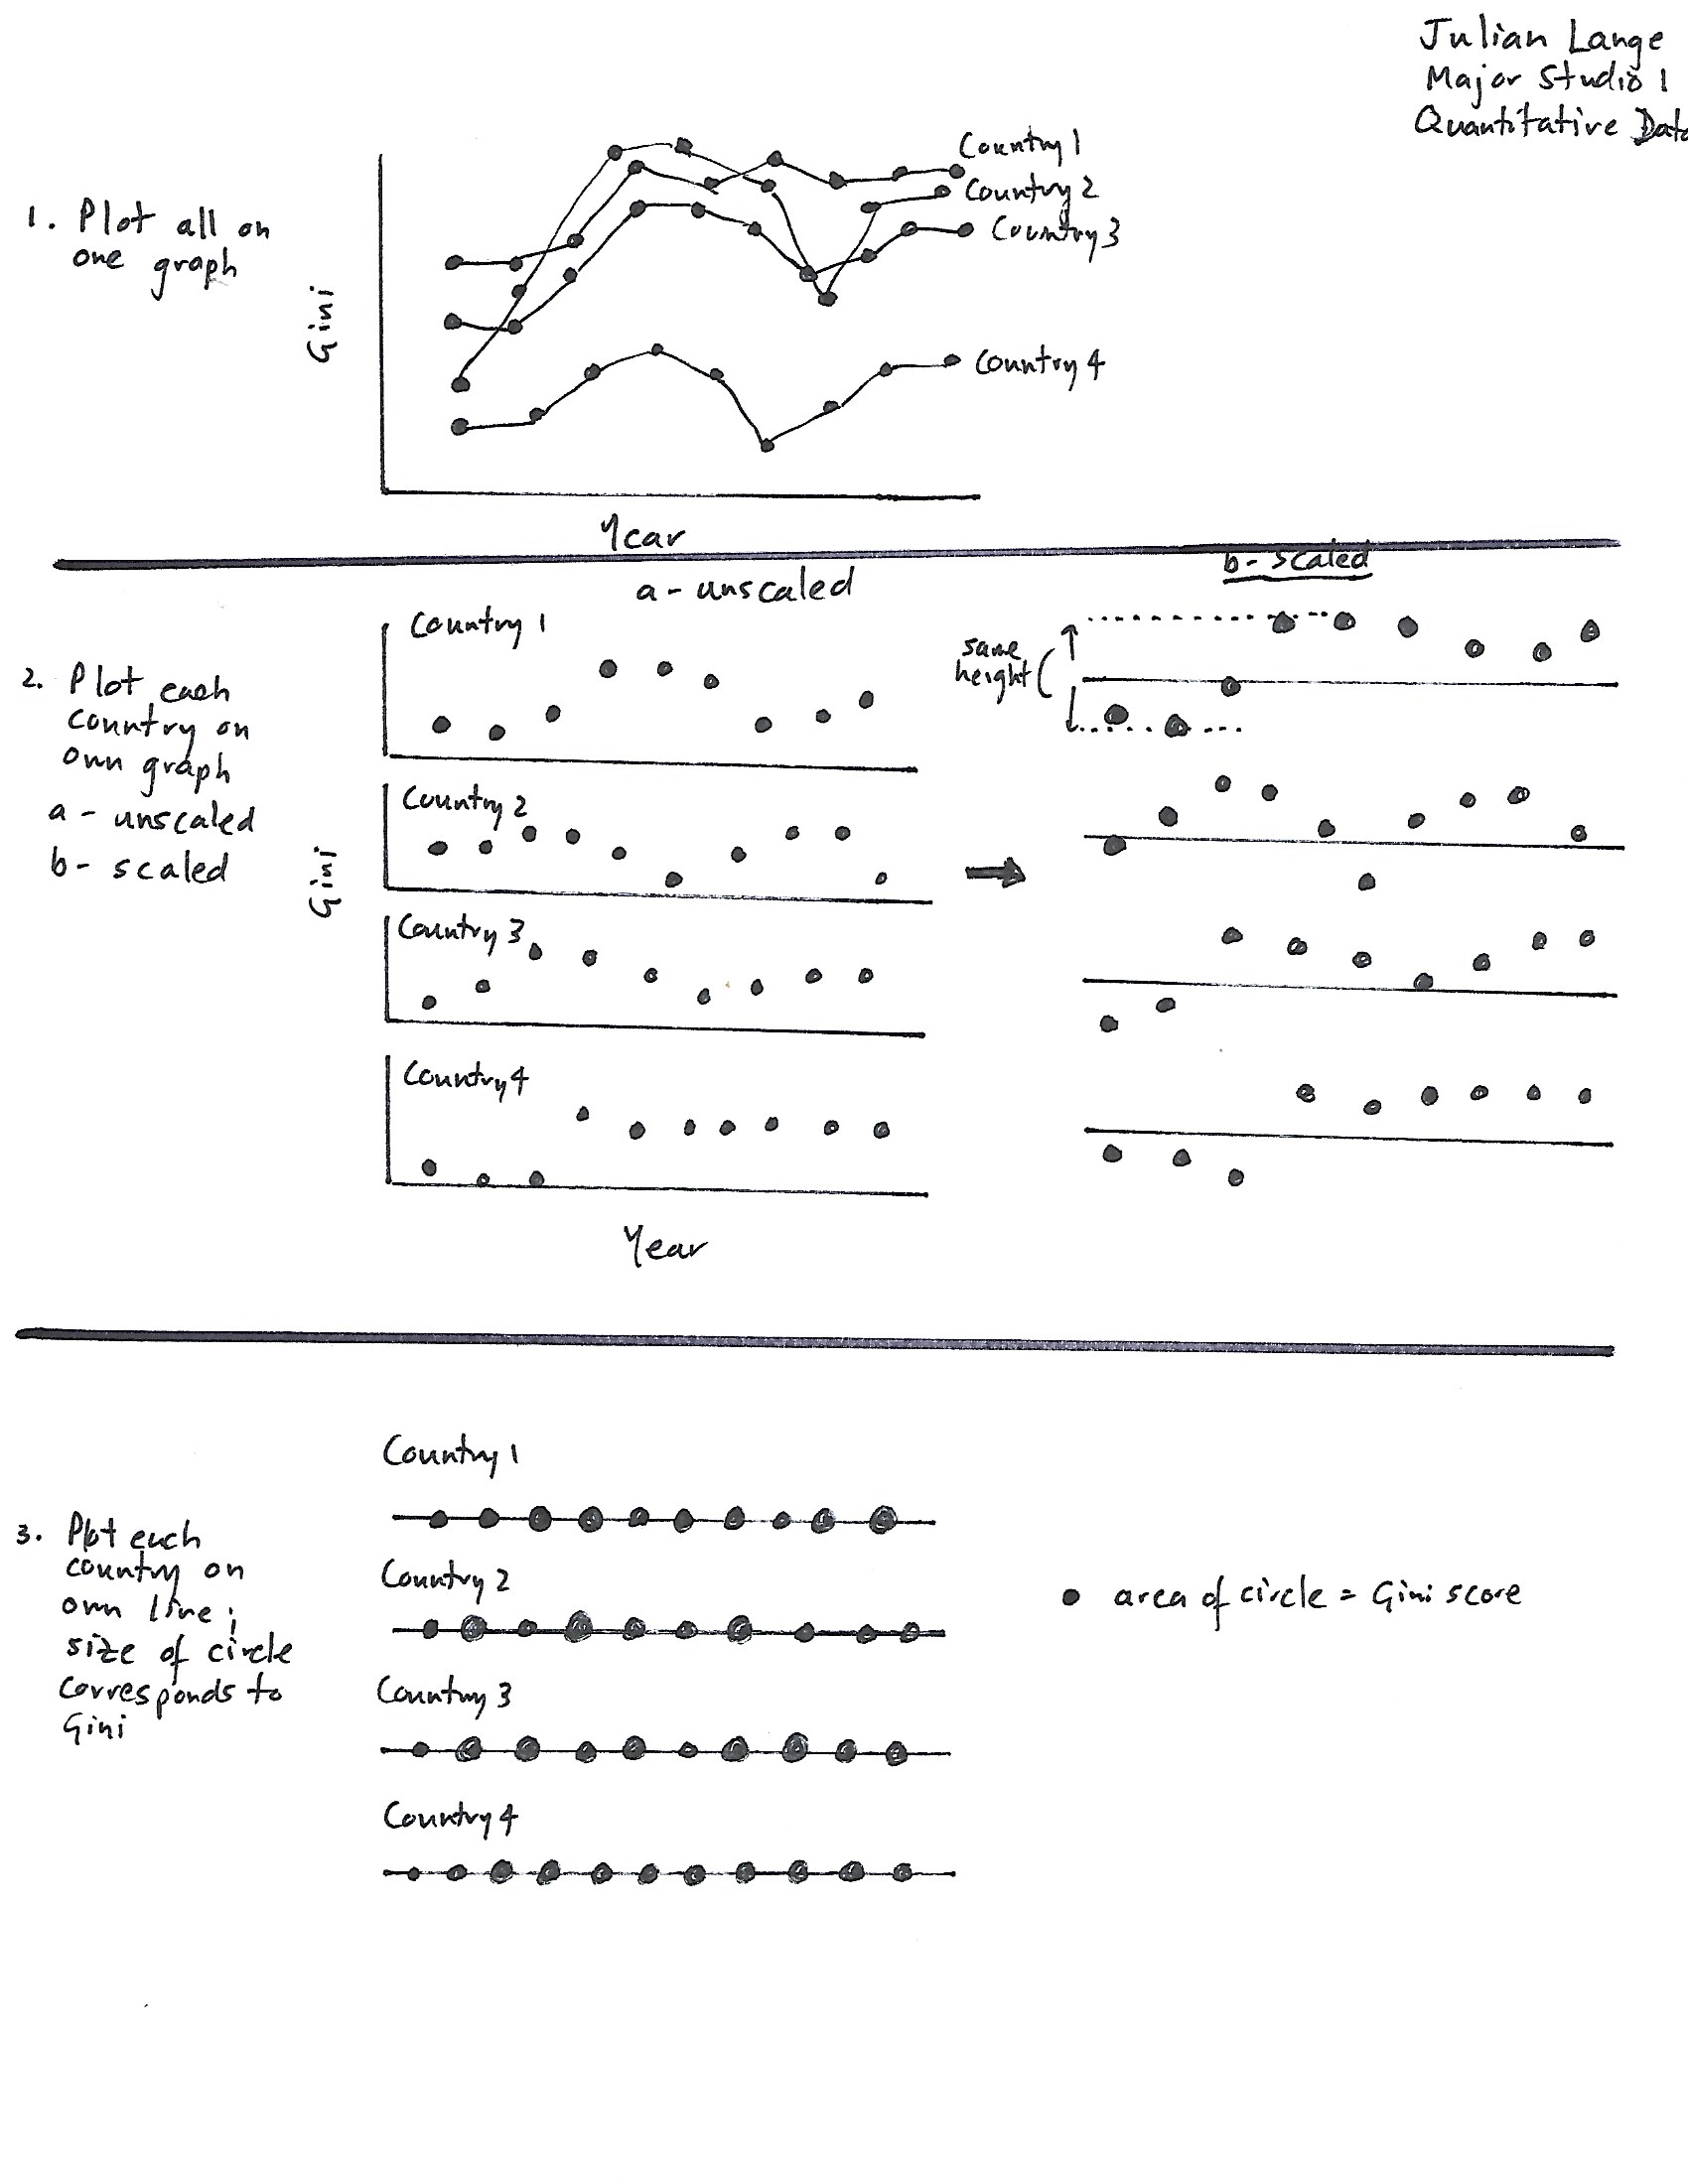 Julian Lange
Major Studio 1
Quantitative Data
1. Plot all on
one graph
Gini
Country 1
Country 2
Country 3
Country 4
Year
a - unscaled
b - scaled
2. Plot each
country on
own graph
a - unscaled
b - scaled
Gini
Country 1
Country 2
Country 3
Country 4
same
height
Year
3. Plot each
country on
own line;
size of circle
corresponds to
Gini
Country 1
Country 2
Country 3
Country 4
area of circle = Gini score